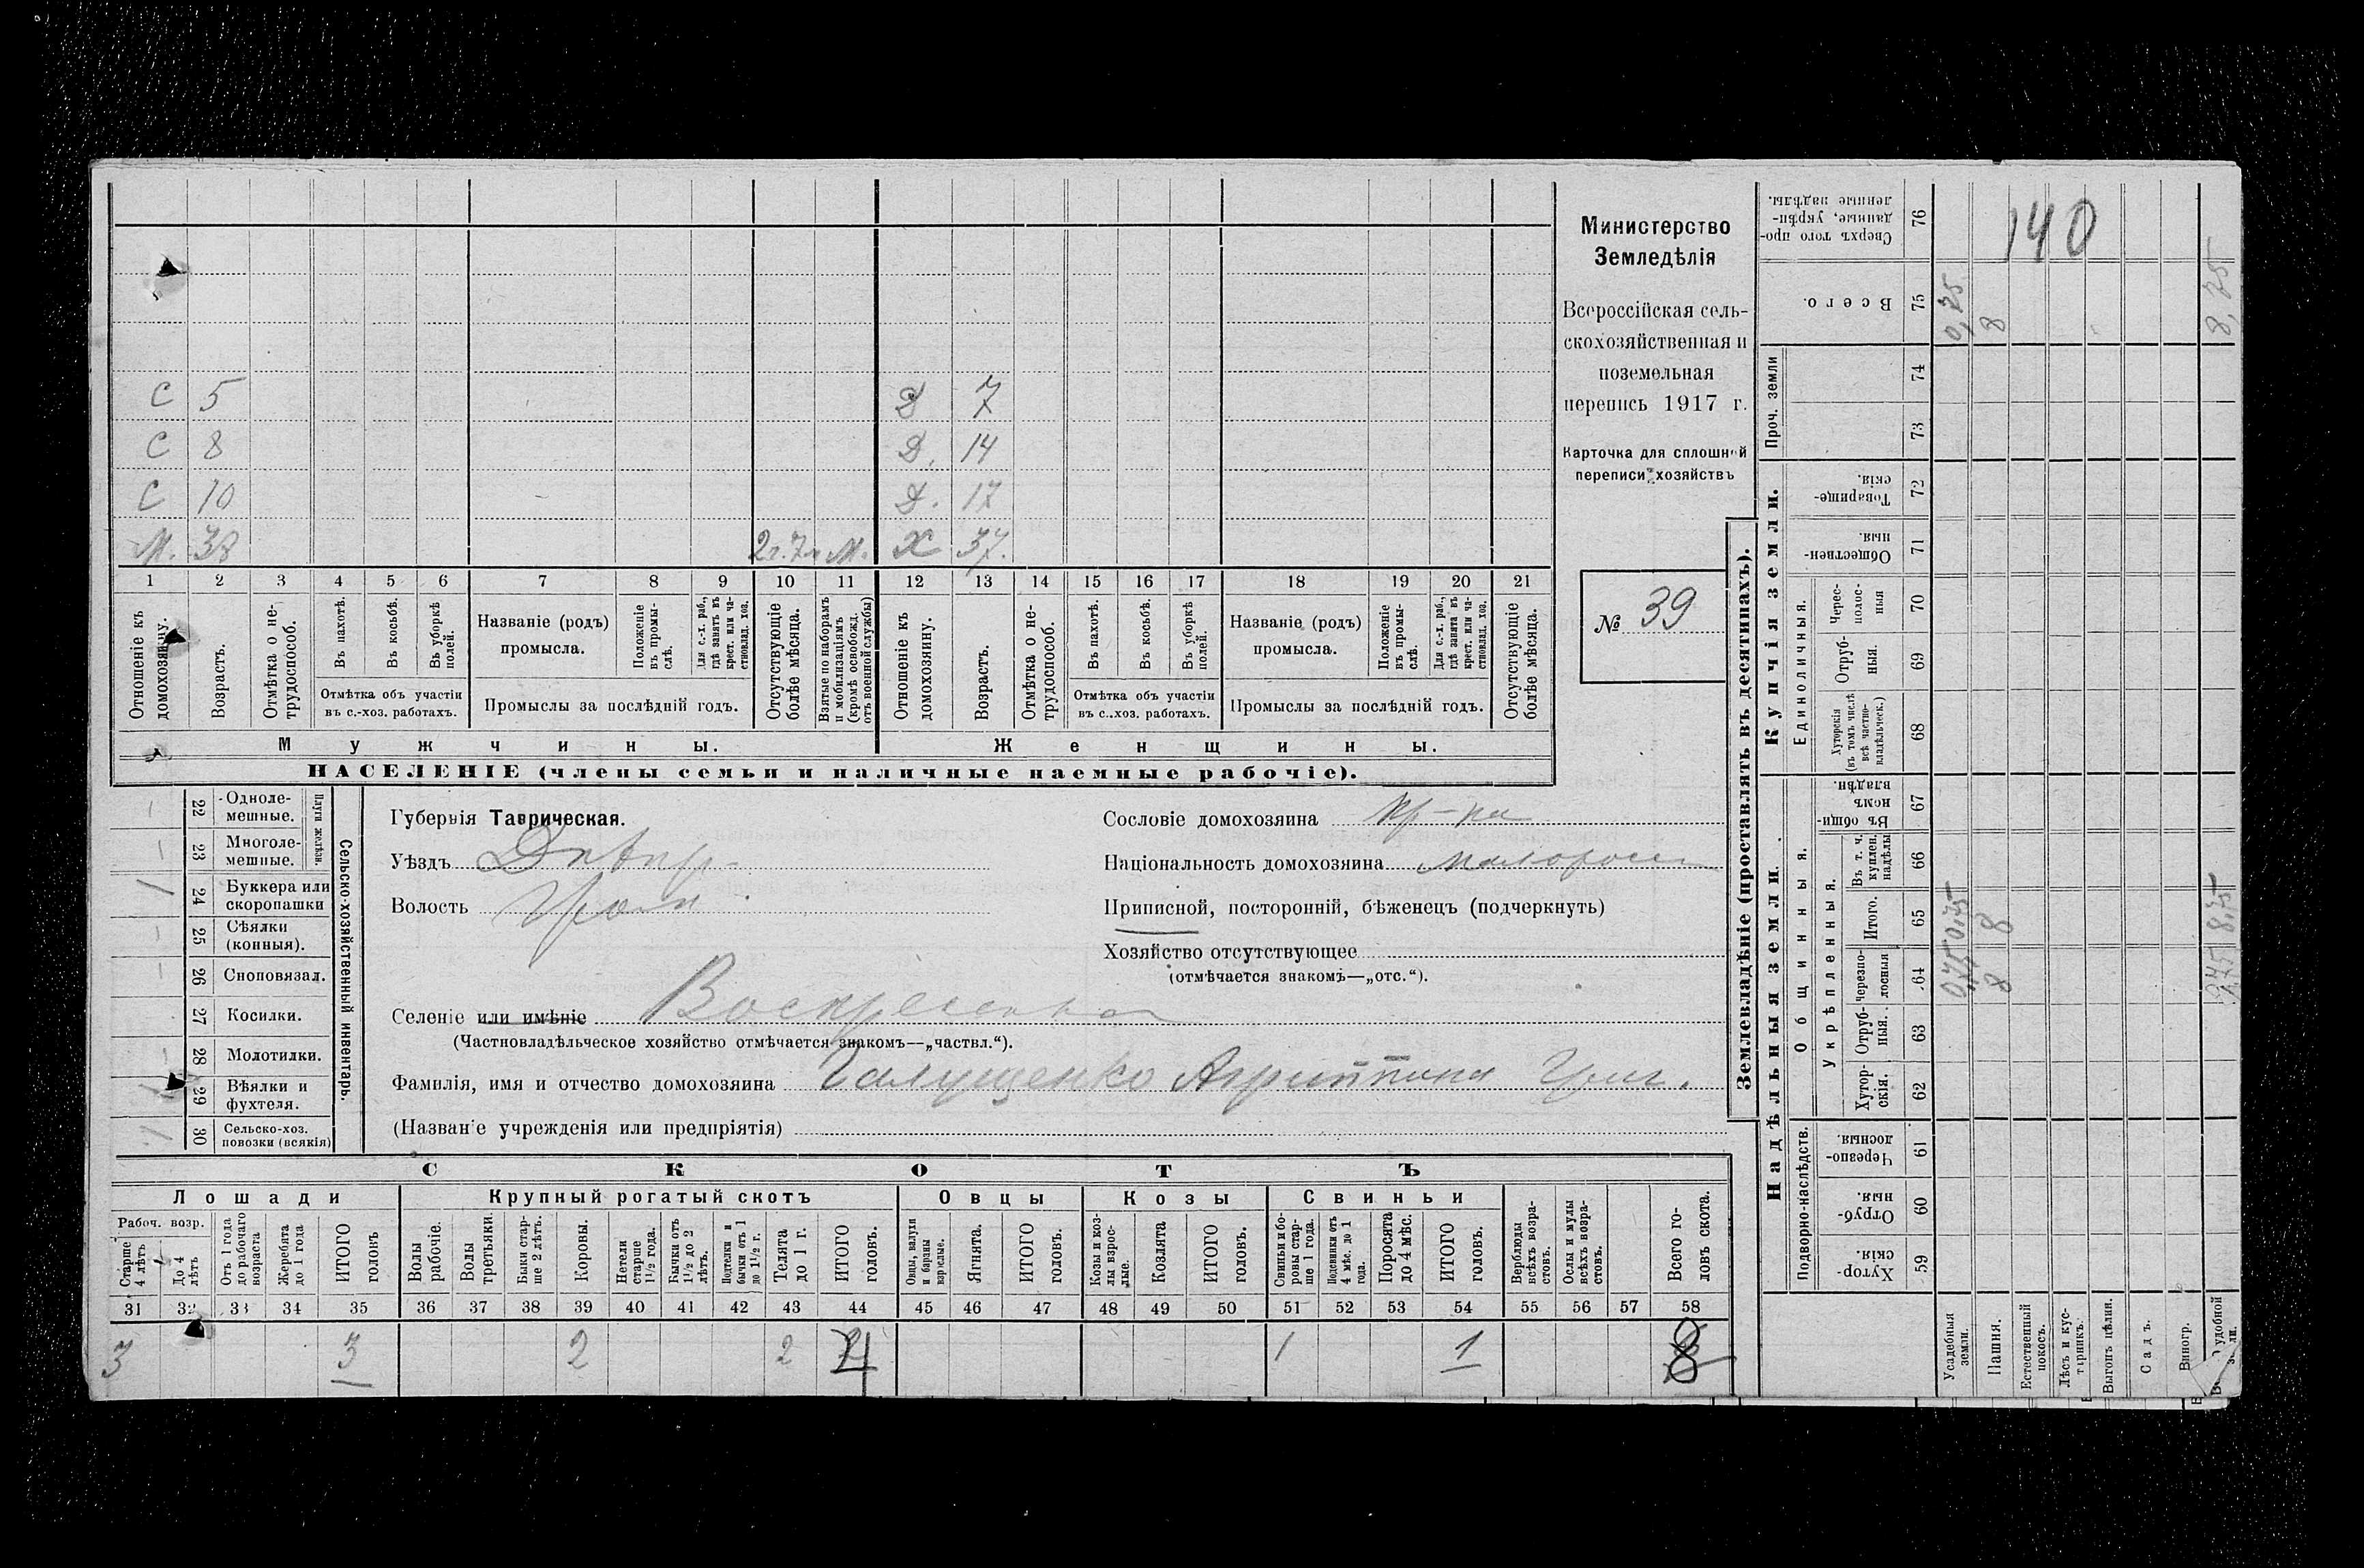 С 5 Д 7
С 8 Д. 14
С 10 Д. 17
М. 38 2 г. 7 м М. Х 37.
1 2 3 4 5 6 7 8 9 10 11 12 13 14 15 16 17 18 19 20 21
Отношеніе къ домохозяину.
Возрастъ.
Отмѣтка о не-
трудоспособ.
Въ пахотѣ.
Въ косьбѣ.
Въ уборкѣ
полей.
Отмѣтка объ участіи
въ с.-хоз. работахъ.
Названіе (родъ)
промысла.
Положеніе
въ промы-
слѣ.
Для с.-х. раб.,
гдѣ занятъ въ
крест. или ча-
стновлад. хоз.
Промыслы за послѣдній годъ.
Отсутствующіе
болѣе мѣсяца.
Взятые по наборамъ
и мобилизаціямъ
(кромѣ освобожд.
отъ военной службы)
Отношеніе къ
домохозяину.
Возрастъ.
Отмѣтка о не-
трудоспособ.
Въ пахотѣ.
Въ косьбѣ.
Въ уборкѣ
полей.
Отмѣтка объ участіи
въ с.-хоз. работахъ.
Названіе (родъ)
промысла.
Положеніе
въ промы-
слѣ.
Для с.-х. раб.,
гдѣ занята въ
крест. или ча-
стновлад. хоз.
Промыслы за послѣдній годъ.
Отсутствующіе
болѣе мѣсяца.
Мужчины.
Женщины.
НАСЕЛЕНІЕ (члены семьи и наличные наемные рабочіе).
Министерство
Земледѣлія
Всероссійская сель-
скохозяйственная и
поземельная
перепись 1917 г.
Карточка для сплошной
переписи хозяйствъ
№ 39
22 Одноле-
мешные.
23 Многоле-
мешные.
Плуги желѣзн.
24 Буккера или
скоропашки
1
25 Сѣялки
(конныя).
26 Сноповязал.
27 Косилки.
28 Молотилки.
29 Вѣялки и
фухтеля.
30 Сельско-хоз.
повозки (всякія)
1
Сельско-хозяйственный инвентарь.
Губернія Таврическая.
Уѣздъ Днѣпр.
Волость
Селеніе или имѣніе Воскресенка
(Частновладѣльческое хозяйство отмѣчается знакомъ—„частвл.“).
Фамилія, имя и отчество домохозяина Галущенко Агриппина Григ.
(Названіе учрежденія или предпріятія)
Сословіе домохозяина кр-ка
Національность домохозяина малоросс
Приписной, посторонній, бѣженецъ (подчеркнуть)
Хозяйство отсутствующее
(отмѣчается знакомъ—„отс.“).
СКОТЪ
Лошади
Рабоч. возр.
Старше
4 лѣтъ
До 4
лѣтъ
Отъ 1 года
до рабочаго
возраста
Жеребята
до 1 года
ИТОГО
головъ
Крупный рогатый скотъ
Волы
рабочіе.
Волы
третьяки.
Быки стар-
ше 2 лѣтъ.
Коровы.
Нетели
старше
1½ года.
Бычки отъ
1½ до 2
лѣтъ.
Подтелки и
бычки отъ 1
до 1½ г.
Телята
до 1 г.
ИТОГО
головъ.
Овцы
Овцы, валухи
и бараны
взрослые.
Ягнята.
ИТОГО
головъ.
Козы
Козы и коз-
лы взрос-
лые.
Козлята
ИТОГО
головъ.
Свиньи
Свиньи и бо-
ровы стар-
ше 1 года.
Подсвинки отъ
4 мѣс. до 1
года.
Поросята
до 4 мѣс.
ИТОГО
головъ.
Верблюды
всѣхъ возра-
стовъ.
Ослы и мулы
всѣхъ возра-
стовъ.
Всего го-
ловъ скота.
31 32 33 34 35 36 37 38 39 40 41 42 43 44 45 46 47 48 49 50 51 52 53 54 55 56 57 58
3 3 2 2 4 1 1 8
Землевладѣніе (проставлять въ десятинахъ).
Надѣльныя земли.
Купчія земли.
Проч. земли
Сверхъ того про-
данные, укрѣп-
ленные надѣлы.
76
140
Всего.
75
0,25
8
8,25
74
73
Товарище-
скія.
72
Обществен-
ныя.
71
Единоличныя.
Черес-
полос-
ныя
70
Отруб-
ныя.
69
Хуторскія
(въ томъ числѣ
всѣ частно-
владѣльческ.)
68
Общинныя.
Въ общи-
номъ
владѣн.
67
Укрѣпленныя.
Въ т. ч.
куплен.
надѣлы
66
Итого.
65
0,25
8
8,25
Черезпо-
лосныя
64
8
Отруб-
ныя.
63
Хутор-
скія.
62
Подворно-наслѣдств.
Черезпо-
лосныя.
61
Отруб-
ныя.
60
Хутор-
скія.
59
Усадебныя
земли.
Пашня.
Естественный
покосъ.
Лѣсъ и кус-
тарникъ.
Выгонъ цѣлин.
Садъ.
Виногр.
удобной